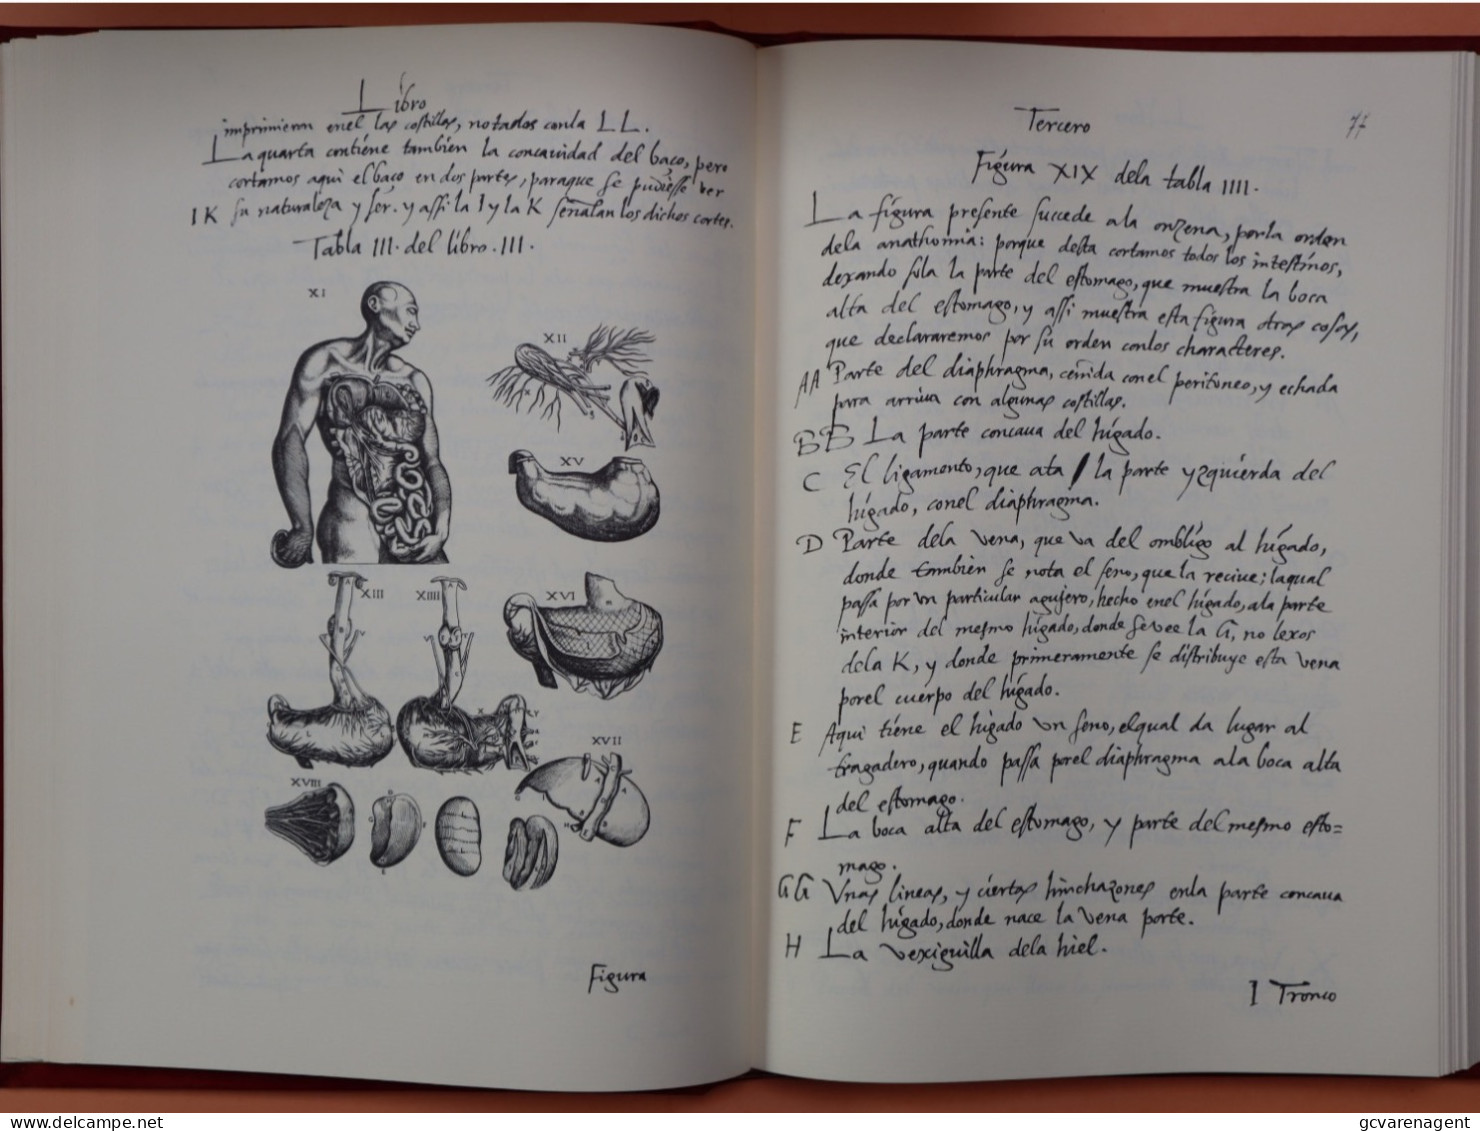 Libro
imprimieron enel las costillas, notados conla LL.
La quarta contiene tambien la concauidad del baço, pero
cortamos aqui el baço en dos partes, paraque se pudiesse ver
IK su naturaleza y ser. y assi la I y la K señalan los dichos cortes.
Tabla III. del libro. III.
XI
XII
XV
XIII
XIIII
XVI
XVII
XVIII
Figura
Tercero
77
Figura XIX dela tabla IIII.
La figura presente succede ala onzena, porla orden
dela anathomia: porque desta cortamos todos los intestinos,
dexando sola la parte del estomago, que muestra la boca
alta del estomago, y assi muestra esta figura otras cosas,
que declararemos por su orden conlos characteres.
AA Parte del diaphragma, ceñida conel peritoneo, y echada
para arriua con algunas costillas.
BB La parte concaua del higado.
C El ligamento, que ata la parte yzquierda del
higado, conel diaphragma.
D Parte dela vena, que va del ombligo al higado,
donde tambien se nota el seno, que la reciue; laqual
passa por vn particular agujero, hecho enel higado, ala parte
interior del mesmo higado, donde se vee la G, no lexos
dela K, y donde primeramente se distribuye esta vena
porel cuerpo del higado.
E Aqui tiene el higado vn seno, elqual da lugar al
tragadero, quando passa porel diaphragma ala boca alta
del estomago.
F La boca alta del estomago, y parte del mesmo esto=
mago.
GG Vnas lineas, y ciertas hinchazones enla parte concaua
del higado, donde nace la vena porte.
H La vexiguilla dela hiel.
I Tronco
Delcampe.net
gcvarenagent